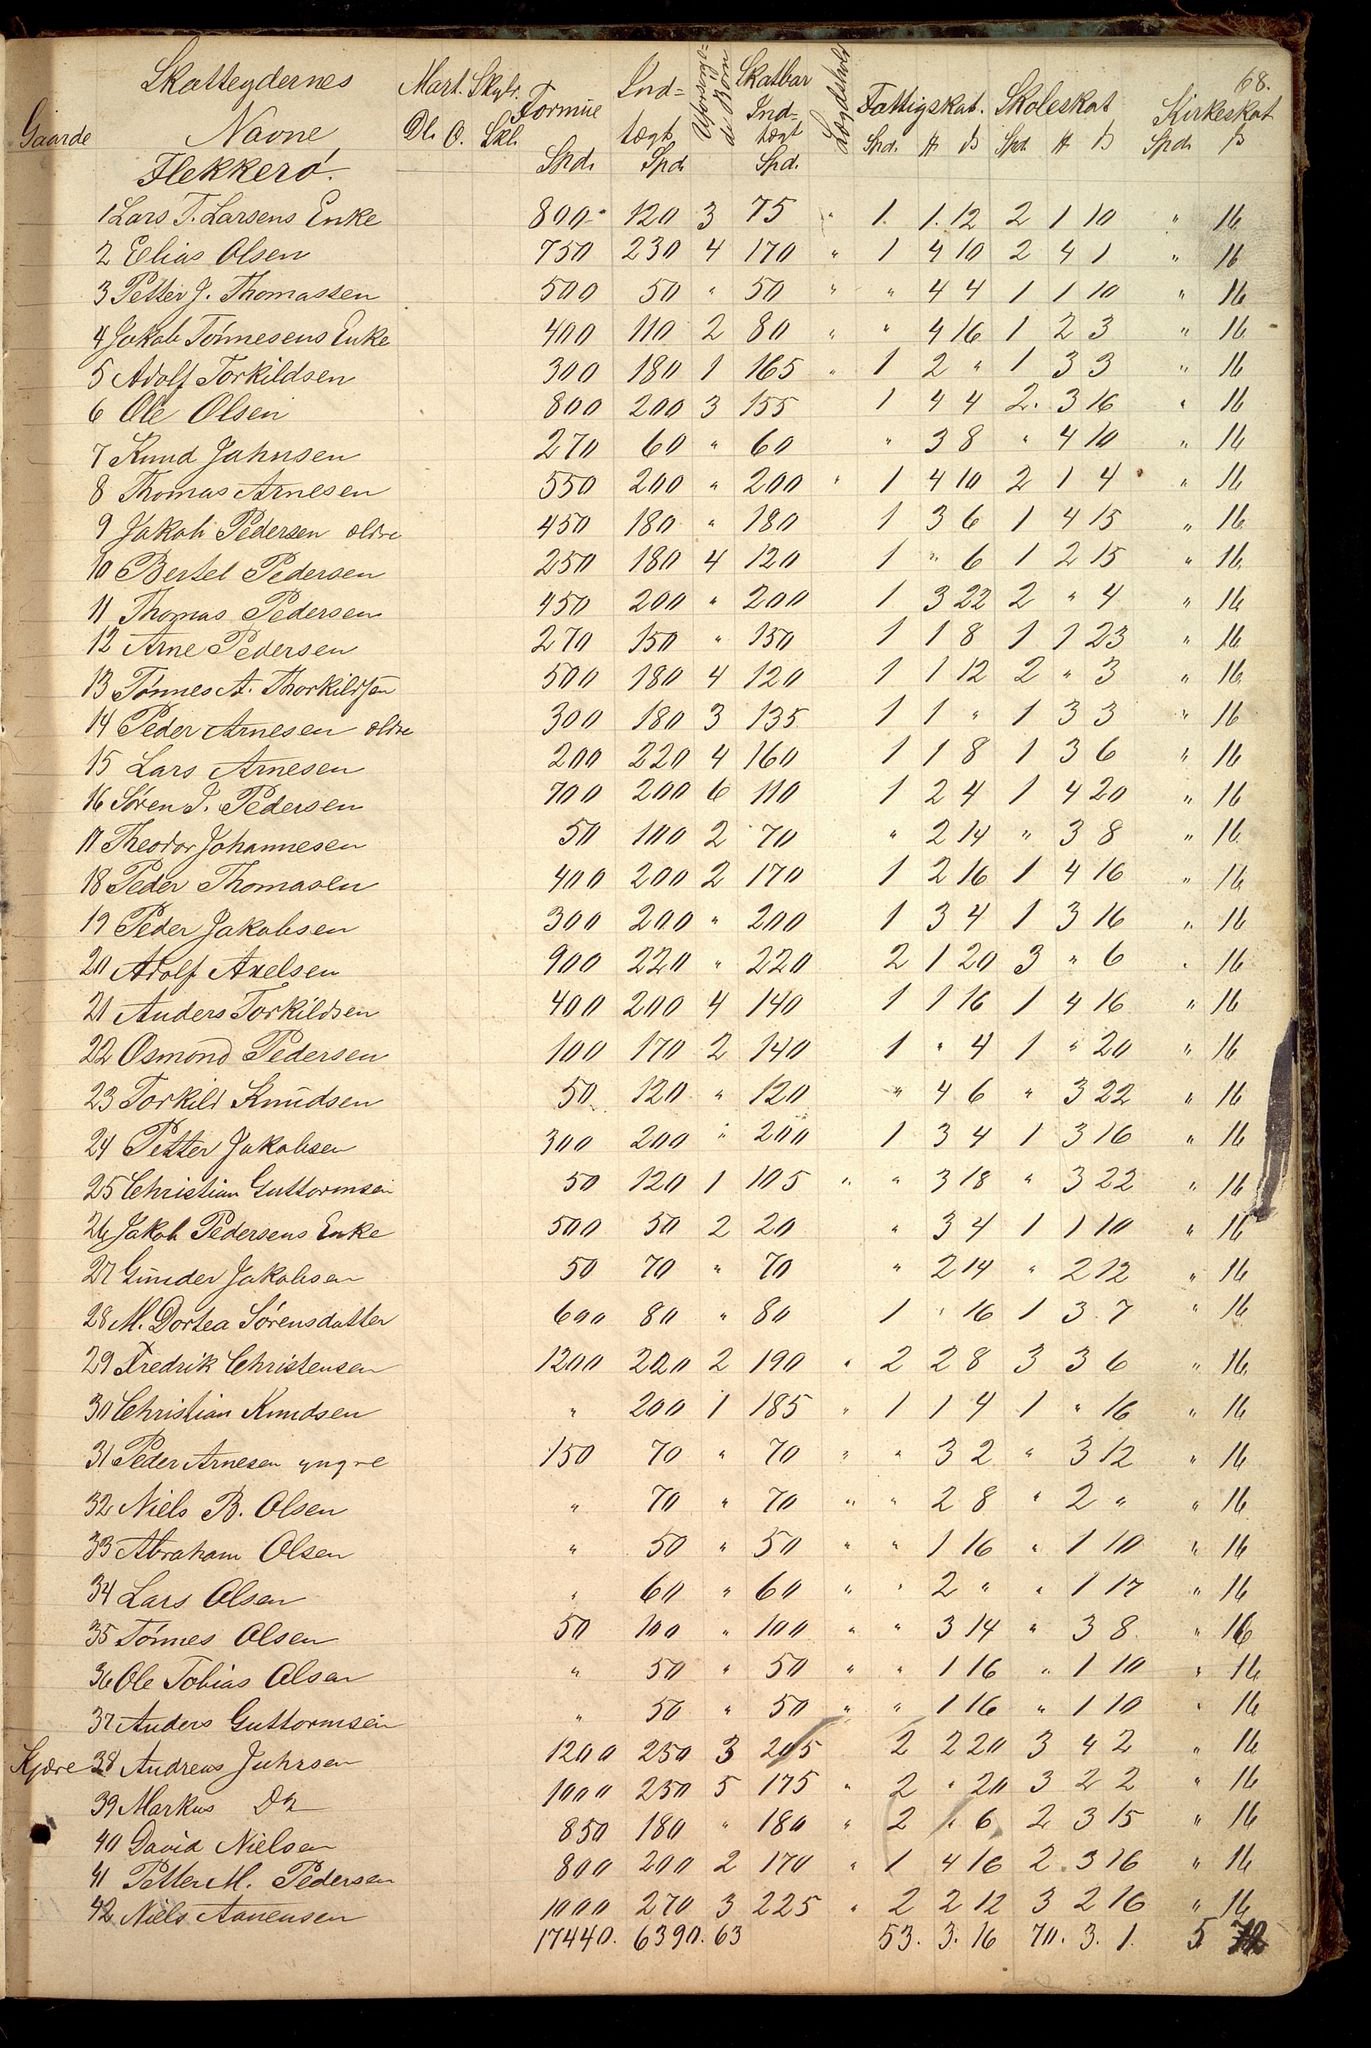 68.
Gaarde Skatteydernes Navne Mart. Skyld. Dl. O. Skl. Formue Spd. Indtægt Spd. Uforsørgede Børn Skatbar Indtægt Spd. Lægdshold Fattigskat. Spd. # ß Skoleskat Spd. # ß Kirkeskat Spd. ß
Flekkerø.
1 Lars T. Larsens Enke 800 120 3 75 " 1. 1. 12 2 1 10 " 16
2 Elias Olsen 750 230 4 170 " 1 4 10 2 4 1 " 16
3 Petter J. Thomassen 500 50 " 50 " " 4 4 1 1 10 " 16
4 Jakob Tønnesens Enke 400 110 2 80 " " 4 16 1 2 3 " 16
5 Adolf Torkildsen 300 180 1 165 " 1 2 " 1 3 3 " 16
6 Ole Olsen 800 200 3 155 1 4 4 2. 3 16 " 16
7 Knud Jahnsen 270 60 " 60 " 3 8 " 4 10 " 16
8 Thomas Arnesen 550 200 " 200 " 1 4 10 2 1 4 " 16
9 Jakob Pedersen ældre 450 180 " 180 1 3 6 1 4 15 " 16
10 Bertel Pedersen 250 180 4 120 1 " 6 1 2 15 " 16
11 Thomas Pedersen 450 200 " 200 1 3 22 2 " 4 " 16
12 Arne Pedersen 270 150 " 150 1 1 8 1 1 23 " 16
13 Tønnes A. Thorkildsen 500 180 4 120 1 1 12 2 " 3 " 16
14 Peder Arnesen ældre 300 180 3 135 1 1 " 1 3 3 " 16
15 Lars Arnesen 200 220 4 160 1 1 8 1 3 6 " 16
16 Søren J. Pedersen 700 200 6 110 1 2 4 1 4 20 " 16
17 Theodor Johannesen 50 100 2 70 " 2 14 " 3 8 " 16
18 Peder Thomasen 400 200 2 170 1 2 16 1 4 16 " 16
19 Peder Jakobsen 300 200 " 200 1 3 4 1 3 16 " 16
20 Adolf Axelsen 900 220 " 220 2 1 20 3 " 6 " 16
21 Anders Torkildsen 400 200 4 140 1 1 16 1 4 16 " 16
22 Osmond Pedersen 100 170 2 140 1 " 4 1 " 20 " 16
23 Torkild Knudsen 50 120 " 120 " 4 6 " 3 22 " 16
24 Petter Jakobsen 300 200 " 200 1 3 4 1 3 16 " 16
25 Christian Guttormsen 50 120 1 105 " " 3 18 " 3 22 " 16
26 Jakob Pedersens Enke 500 50 2 20 " 3 4 1 1 10 " 16
27 Gunder Jakobsen 50 70 " 70 " 2 14 " 2 12 " 16
28 M. Dortea Sørensdatter 600 80 " 80 1 " 16 1 3. 7 " 16
29 Fredrik Christensen 1200 220 2 190 " 2 2 8 3 3 6 " 16
30 Christian Knudsen " 200 1 185 " 1 1 4 1 " 16 " 16
31 Peder Arnesen yngre 150 70 " 70 " " 3 2 " 3 12 " 16
32 Niels B. Olsen " 70 " 70 " " 2 8 " 2 " " 16
33 Abraham Olsen " 50 " 50 " " 1 16 " 1 10 " 16
34 Lars Olsen " 60 " 60 " " 2 " " 1 17 " 16
35 Tønnes Olsen 50 100 " 100 " " 3 14 " 3 8 " 16
36 Ole Tobias Olsen " 50 " 50 " " 1 16 " 1 10 " 16
37 Anders Guttormsen " 50 " 50 " " 1 16 " 1 10 " 16
Kjære 38 Andreas Juhrsen 1200 250 3 205 2 2 20 3 4 2 " 16
39 Markus Do 1000 250 5 175 " 2 " 20 3 2 2 " 16
40 David Nielsen 850 180 " 180 " 2 " 6 2 3 15 " 16
41 Petter M. Pedersen 800 200 2 170 " 1 4 16 2. 3 16 " 16
42 Niels Aanensen 1000 270 3 225 " 2 2 12 3 2 16 " 16
17440. 6390. 63 53. 3. 16 70. 3. 1. 5